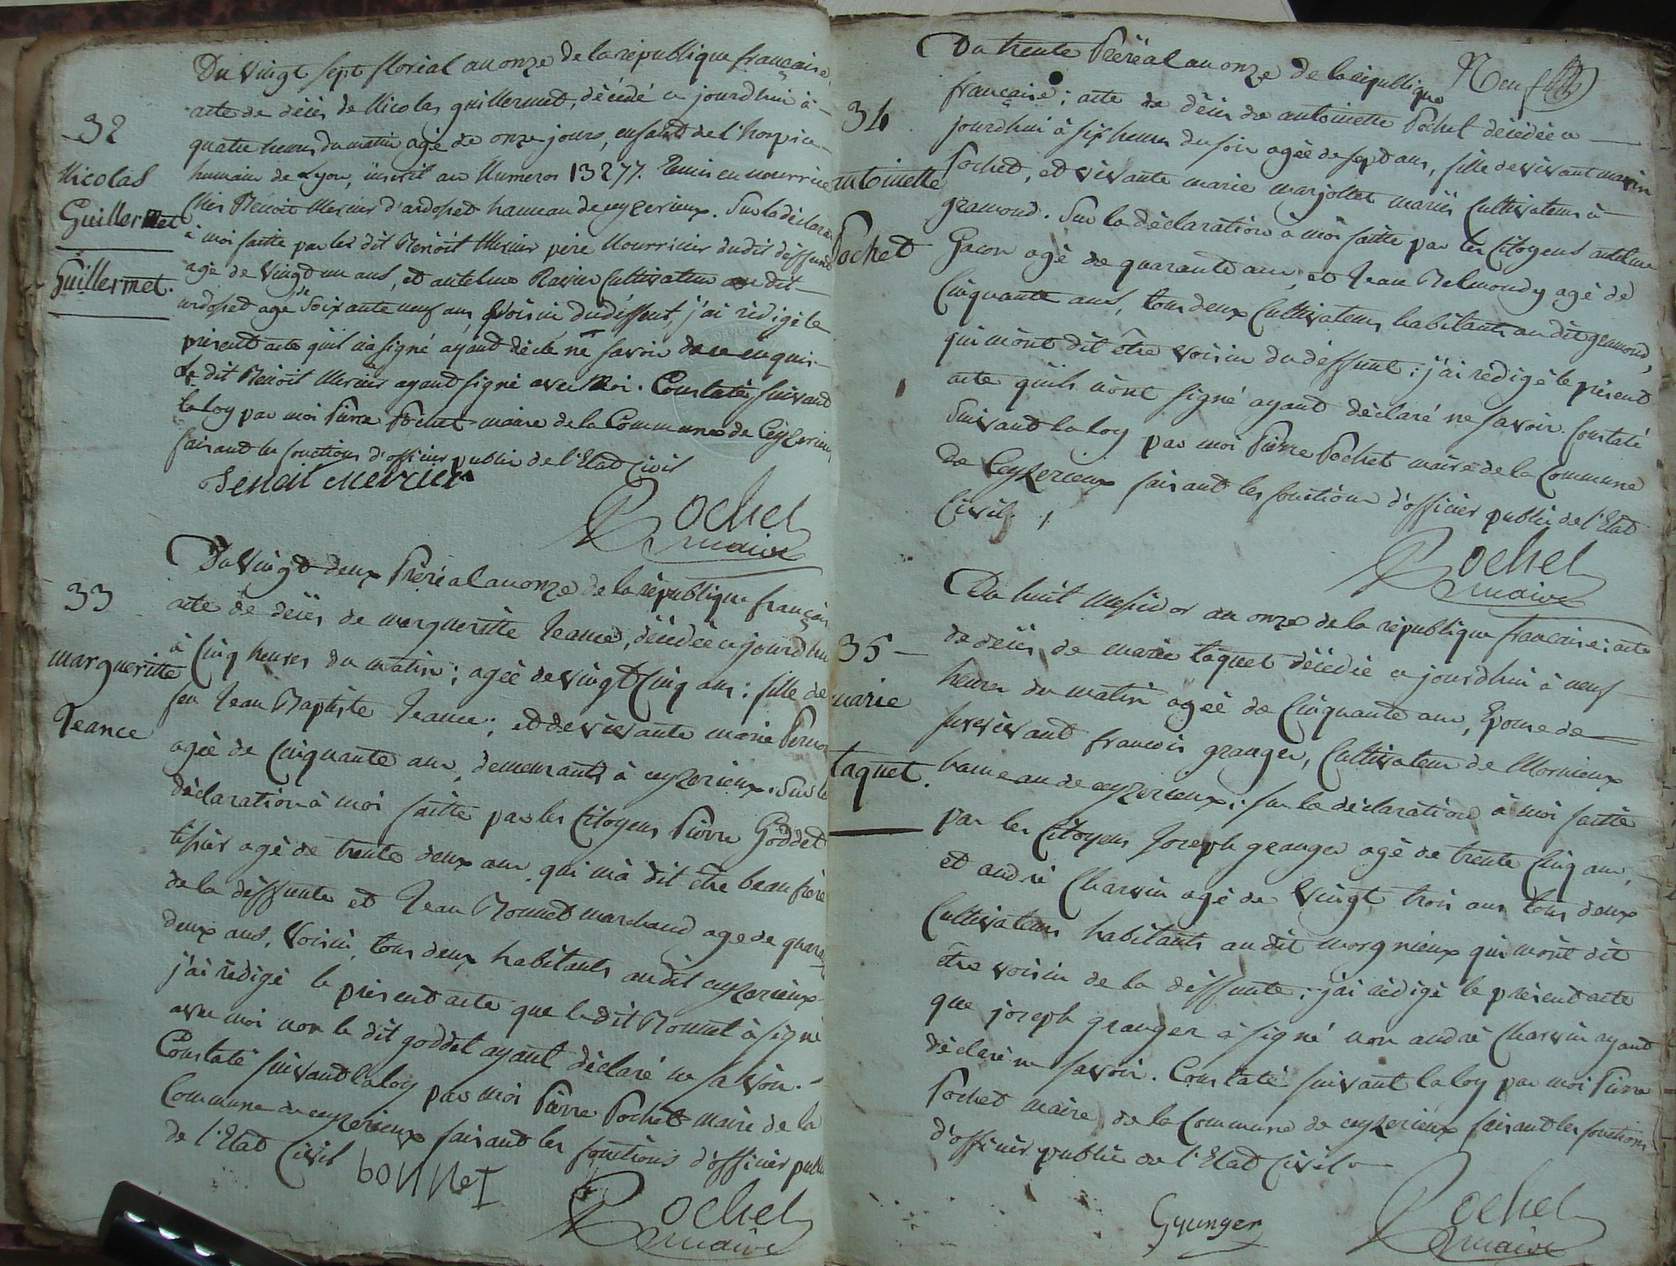 32
Nicolas
Guillermet
Guillermet.
Du vingt sept floréal an onze de la republique française
acte de décès de Nicolas guillermet, décédé ce jourd'hui à
quatre heures du matin agé de onze jours, enfant de l'hospice
humain de Lyon, inscrit au Numeros 13277. Remis en nourrice
chez Benoit Mercier d'ardosset hameau de ceyzerieux. Sur la déclara
à moi faitte par les dit Benoit Mercier pere Nourricier dudit deffunt
agé de vingt un ans, et antelme Ravier Cultivateur au dit
ardosset agé de soixante neuf ans, voisin du déffunt, j'ai rédigé le
présent acte qu'il n'a signé ayant déclaré ne savoir de ce enquis
Le dit Benoit Mercier ayant signé avec Moi. Constaté suivant
la loy par moi Pierre Pochet maire de la Commune de Ceyzerieux
faisant les fonctions d'officier public de l'Etat Civil
Benoit Mercier
Pochet
maire
33
margueritte
Jeance
Du vingt deux Prérial an onze de la république françai
acte de décès de margueritte Jeance, décédée ce jourd'hu
à Cinq heures du matin; agée de vingt Cinq ans: fille de
feu Jean Baptiste Jeance; et de vivante marie
agée de Cinquante ans, demeurants à ceyzerieux. Sur la
déclaration à moi faitte par les Citoyens Pierre Goddet
tissier agé de trente deux ans qui m'a dit être beau frère
de la déffunte et Jean Bonnet marchand agé de quara
deux ans, voisin, tous deux habitants audit ceyzerieux
j'ai rédigé le présent acte que le dit Bonnet à signé
avec moi non le dit goddet ayant déclaré ne savoir.
Constaté suivant la loy par moi Pierre Pochet maire de la
Commune de ceyzerieux faisant les fonctions d'officier publi
de l'Etat Civil
bonnet
Pochet
maire
Neuf
34
antoinette
Pochet
Du trente Prérial an onze de la république
française; acte de décès de antoinette Pochet décédée ce
jourd'hui à six heures du soir agée de sept ans, fille de vivant marin
Pochet, et vivante marie marjollet mariés Cultivateurs à
gramond. Sur la déclaration à moi faitte par les Citoyens antelme
Gacon agé de quarante ans, et Jean Belmondy agé de
Cinquante ans, tous deux Cultivateurs habitants au dit gramond,
qui m'ont dit être voisin du déffunt: j'ai rédigé le présent
acte qu'ils n'ont signé ayant déclaré ne savoir. Constaté
suivant la loy par moi Pierre Pochet maire de la Commune
de Ceyzerieux faisant les fonctions d'officier public de l'Etat
Civil.
Pochet
maire
35
marie
taquet
Du huit Messidor an onze de la république française: acte
de décès de marie taquet décédée ce jourd'hui à neuf
heures du matin agée de Cinquante ans, Epouse de
survivant francois granger, Cultivateur de Mornieux
hameau de ceyzerieux: sur la déclaration à moi faitte
par les Citoyens Joseph granger agé de trente Cinq ans,
et andré Charvin agé de vingt trois ans tous deux
Cultivateurs habitants au dit morgnieux qui m'ont dit
être voisin de la déffunte: j'ai rédigé le présent acte
que joseph granger à signé non andré Charvin ayant
déclaré ne savoir. Constaté suivant la loy par moi Pierre
Pochet maire de la Commune de ceyzerieux faisant les fonctions
d'officier public de l'Etat Civil
Granger
Pochet
maire